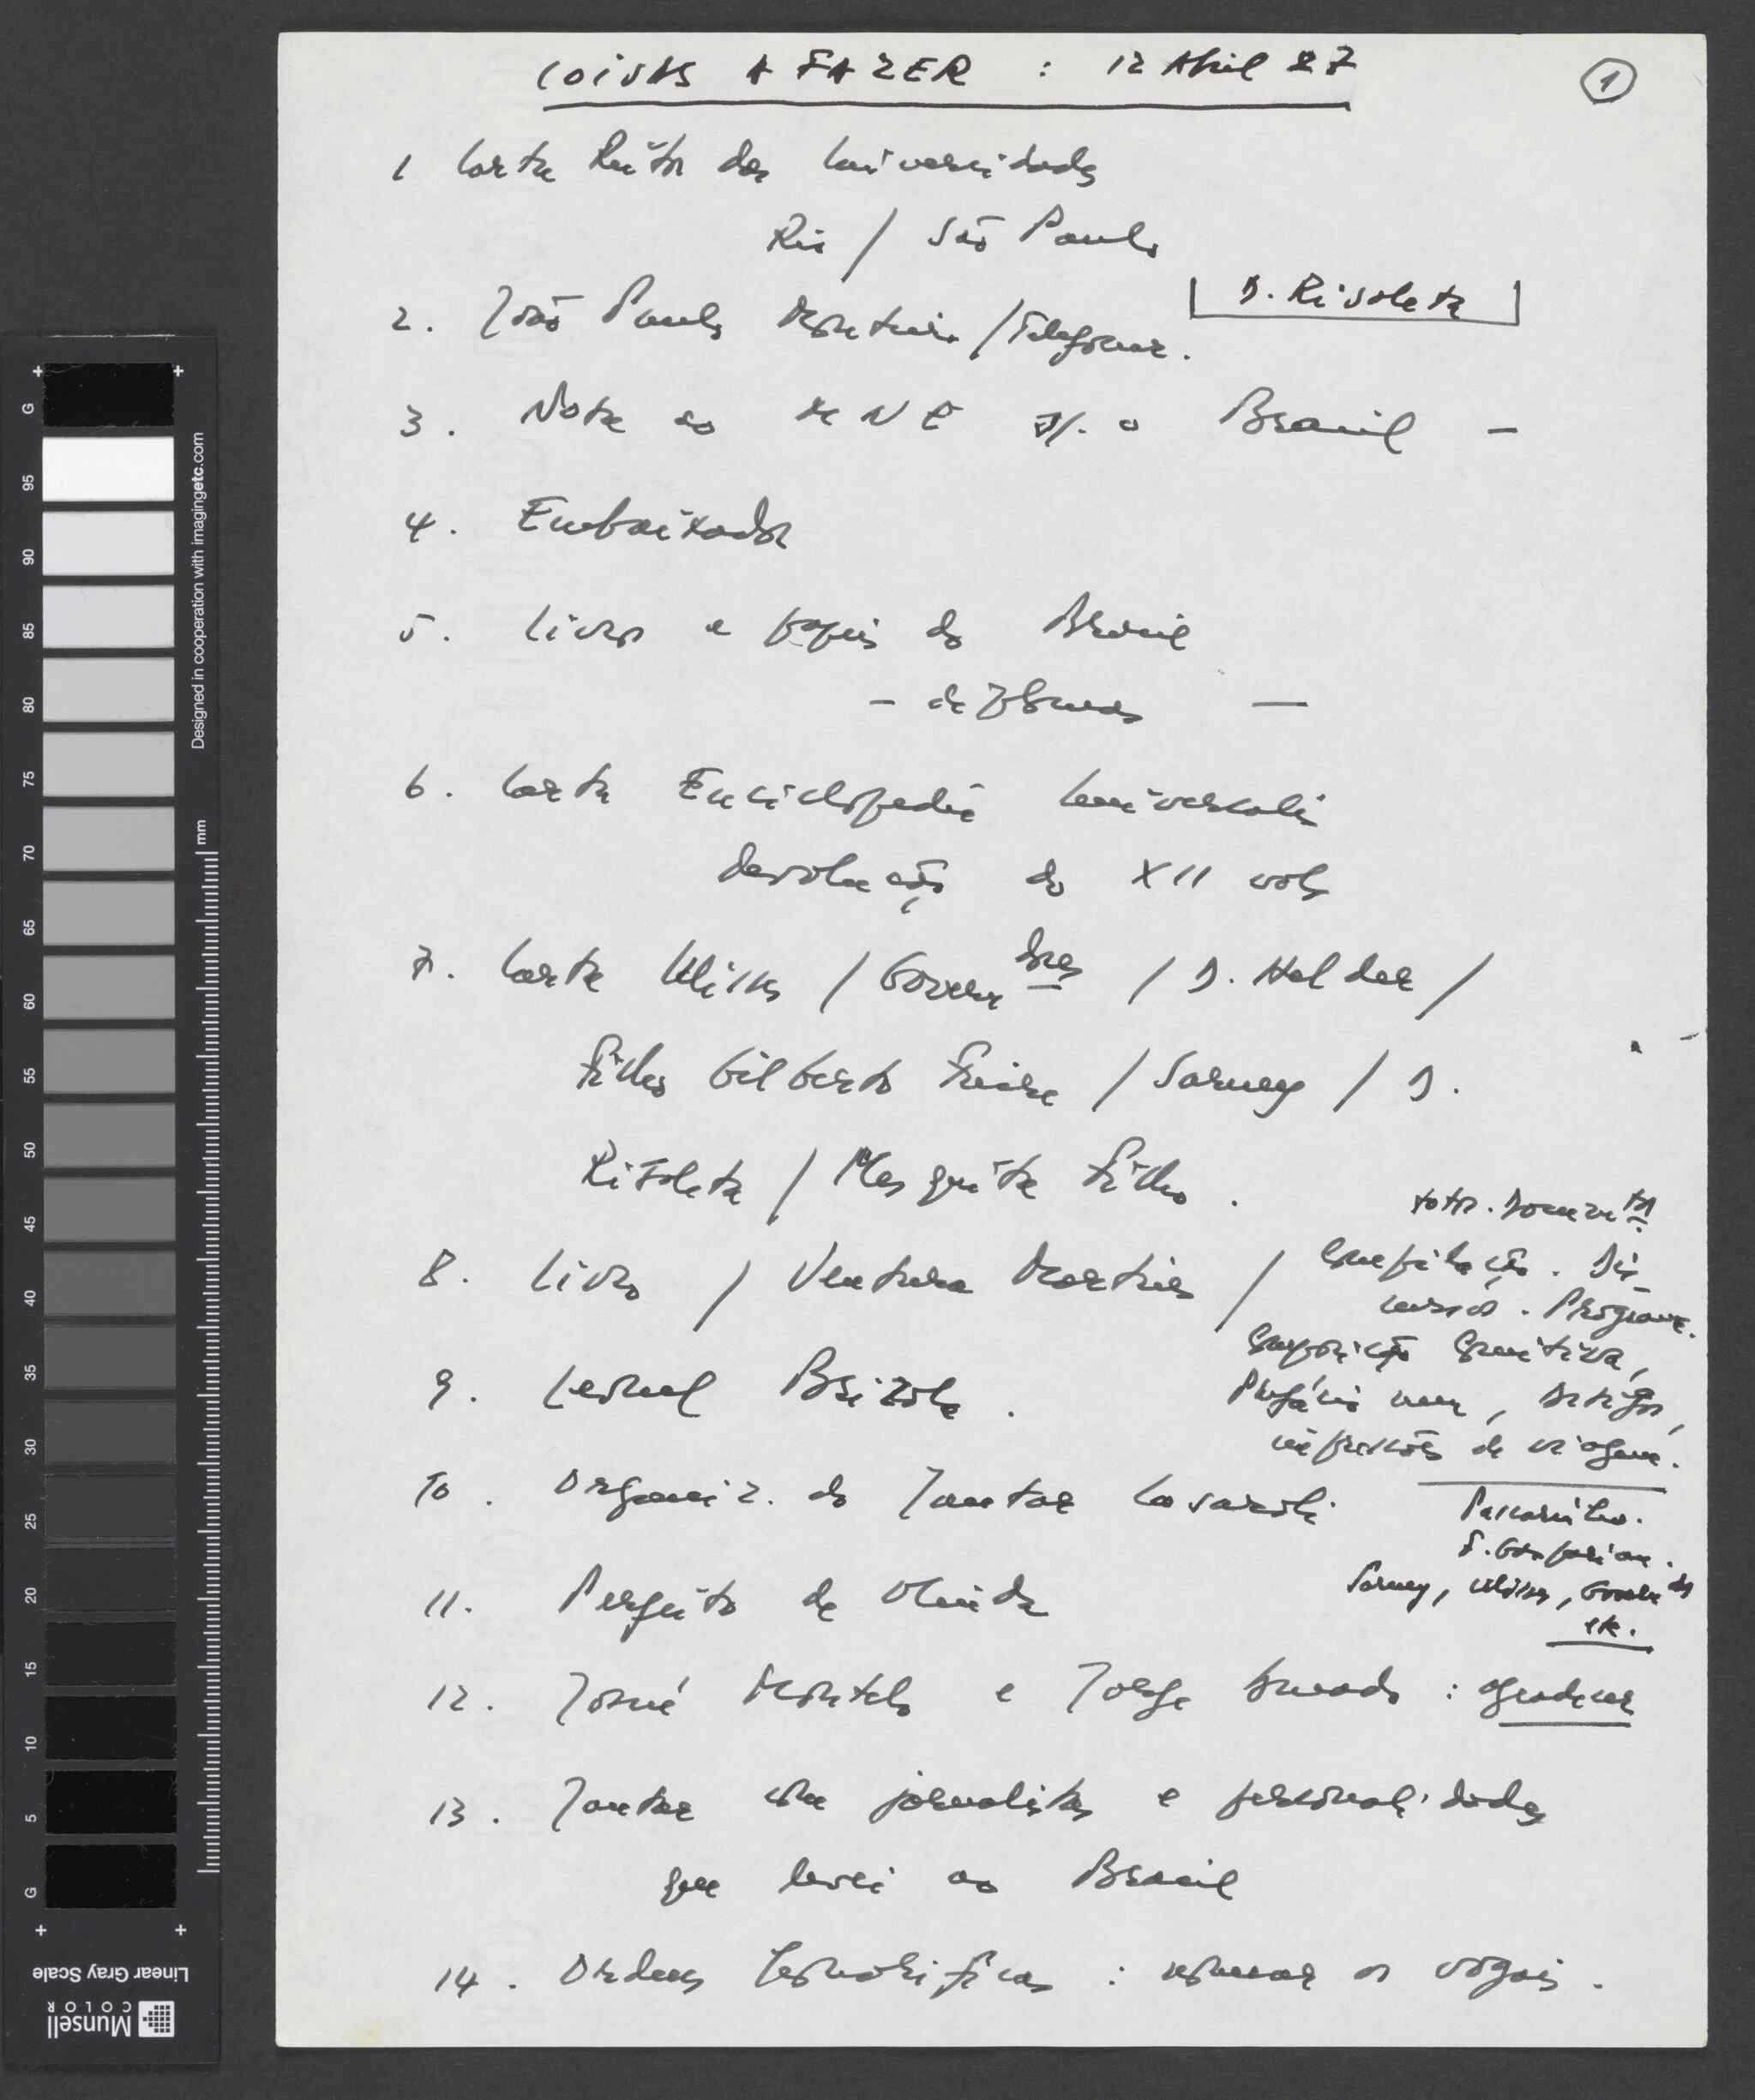 COISAS A FAZER : 12 Abril 87
1
1 Carta Reitor das Universidades
Rio / São Paulo
D. Risoleta
2. João Paulo Monteiro / Telefonar.
3. Nota ao MNE s/. o Brasil –
4. Embaixador
5. Livros e papéis do Brasil
–
6. Carta Enciclopédia Universalis
devolução do XII vols
7. Carta Ulisses / Governdores / D. Helder /
Filho Gilberto Freire / Sarney / D.
Risoleta / Mesquita Filho.
8. Livro / Ventura Martins /
Fotos. Documetos
Compilação. Dis-
cursos. Programa.
Composição Comitiva,
Prefácio meu, Artigos,
impressões de viagem.
9. Leonel Brizola.
10. Organiz. do Jantar Casaroli
Pascoal
F. Gasparian.
Sarney, Ulisses, Governdos
etc.
11. Perfeito de Olinda
12. Josué Montelo e Jorge Amado : agradecer
13. Jantar com jornalistas e personalidades
que levei ao Brasil
14. Ordens Honoríficas : nomear os vogais.
95
90
85
80
75
70
65
60
55
50
45
40
35
30
25
20
15
10
5
G
G
mm
Designed in cooperation with imagingetc.com
Linear Gray Scale
Munsell
COLOR